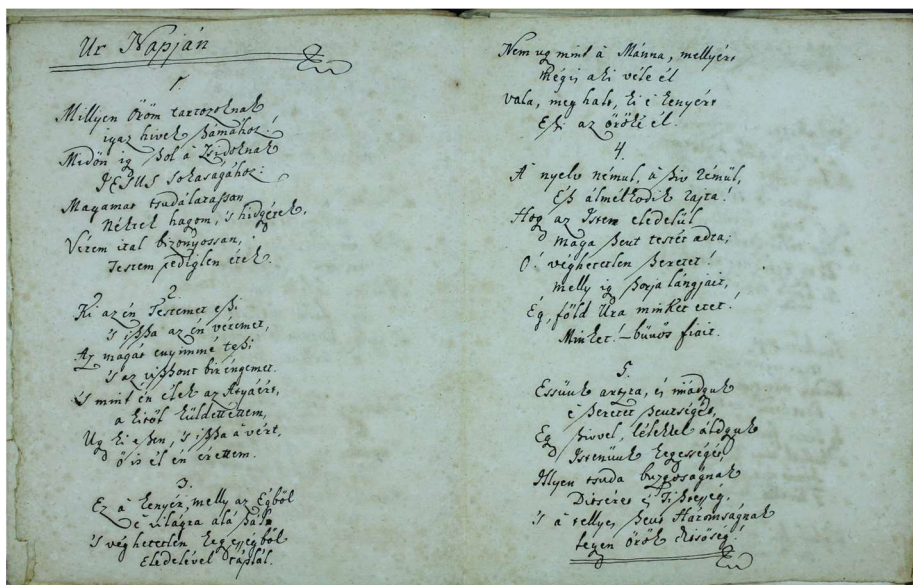 Ur Napján
1.
Millyen öröm tartozoknak
igaz hivek számához!
Midőn ig szol à Zsidoknak
JESUS sokaságához:
Magamat tsudálatassan
Néktek hagom, 's hidgyétek,
Vérem ital bizonyossan,
Testem pediglen étek.
2.
Ki az én Testemet eszi
's issza az én véremet,
Az magát enyimmé teszi
's az viszont bir éngemet.
's mint én élek az Atyáért,
a kitöl küldettettem,
Ug ki eszen, 's issza à vért,
ő is él én érettem.
3.
Ez à kenyér, melly az Égböl
é világra alá szált
's véghetetlen kegyeſségböl
Eledelével táplál.
Nem ug mint à Mánna, mellyért
Régis aki véle élt
vala, meg halt, ki é kenyért
Eszi az örökké él.
4.
À nyelv némul, à sziv rémül,
És álmélkodik rajta!
Hog az Isten eledelül
maga szent testét adta;
Ó! véghetetlen szeretet!
melly ig szorja lángjait,
Ég, föld Ura minket etet!
Minket! – bűnös fiait.
5.
Essünk arczra, és imádguk
é szeretet szentségét,
Eg szivvel, lélekkel áldguk
Istenünk kegyességét,
Illyen tsuda buzgoságnak
Ditséret és Tisztesség,
's à tellyes szent Háromságnak
legyen örök ditsőség.